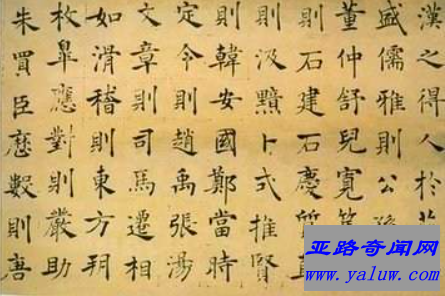 漢之得人於茲
盛儒雅則公孫
董仲舒兒寬篤
則石建石慶質直
則汲黯卜式推賢
則韓安國鄭當時
定令則趙禹張湯
文章則司馬遷相
如滑稽則東方朔
枚皋應對則嚴助
朱買臣歷數則唐
亚路奇闻网
www.yaluw.com